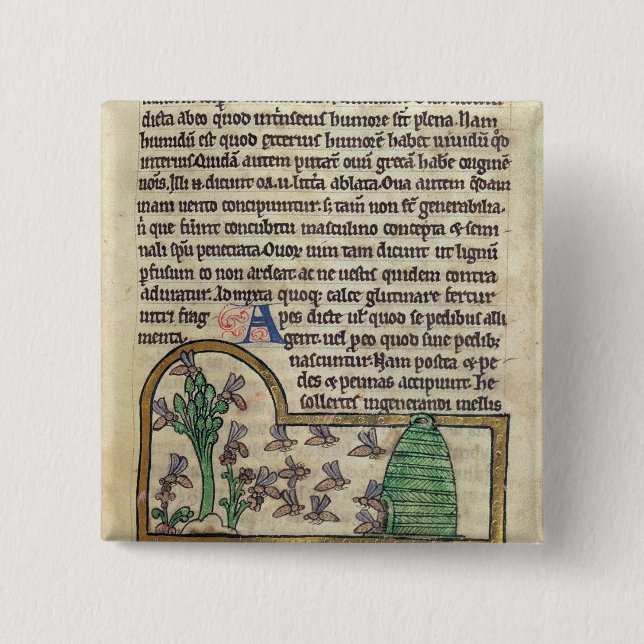 dicta abeo quod intrinsecus humore sit plena. Nam
humidū est quod exterius humorē habet uiuidū qd̓
interius. Quidā autem putāt ouū grecā habe originē
nois. Illi dicunt oa. u. litt̓a ablata. Oua autem qdam
inani uento concipiuntur. s; tam̄ non st̄ generabilia.
n̄ que fuīnt concubitu masculino concepta & semi
nali spū penetrata. Quoꝝ uim tam dicunt ut lignū
ꝑfusum eo non ardeat ac ne uestis quidem contra
aduratur. Admixta quoq; calce glutinare fertur
uitri frag Apes dicte ul̓ quod se pedibus alli
menta. gent. uel ꝑeo quod sine pedib;
nascuntur. Nam postea & pe
des & pennas accipiunt. He
sollertes ingenerandi mellis